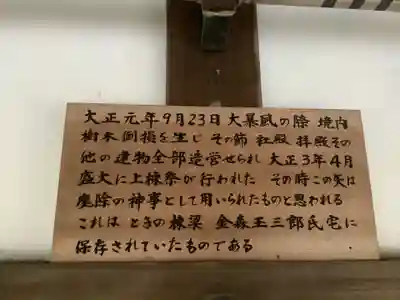 大正元年9月23日大暴風の際 境内
樹木倒損を生じ その節 社殿 拝殿その
他の建物全部造営せられ 大正3年4月
盛大に上棟祭が行われた その時この矢は
魔除の神事として用いられたものと思われる
これは ときの棟梁 金森玉三郎氏宅に
保存されていたものである